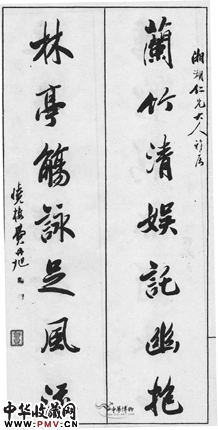 湘湖仁兄大人
蘭竹清娛託幽抱
林亭觴詠足風流
曉樓費丹旭
中华收藏网
www.PMV.cn